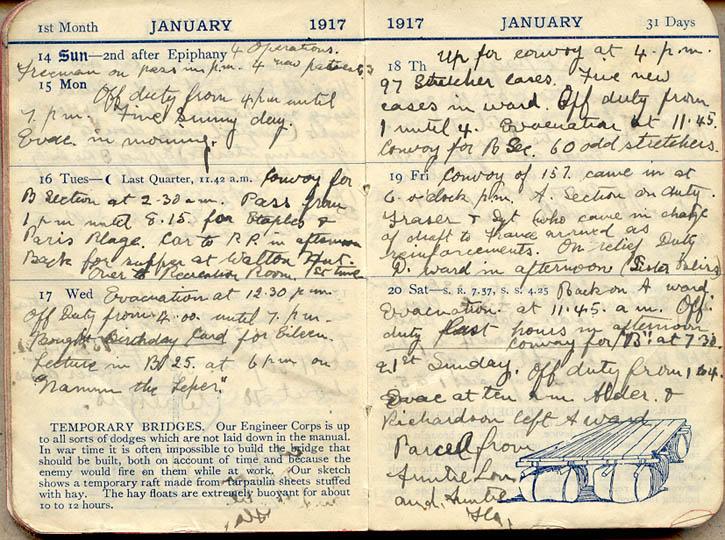 1st Month JANUARY 1917
14 Sun—2nd after Epiphany 4 Operations.
Freeman on pass in p.m. 4 new patients
15 Mon
Off duty from 4 p.m until
7 p.m. Fine Sunny day.
Evac. in morning.
16 Tues—☾ Last Quarter, 11.42 a.m. Convoy for
B Section at 2.30 a.m. Pass from
1 p.m until 8.15. for Etaples &
Paris Plage. Car to P.P. in afternoon
Back for supper at Walton Hut.
Over to Recreation Room, 1st time
17 Wed Evacuation at 12.30 p.m.
Off Duty from 4.00 until 7. p.m.
Bought Birthday Card for Eileen.
Lecture in B 25. at 6 p.m on
"Naaman the Leper".
TEMPORARY BRIDGES. Our Engineer Corps is up
to all sorts of dodges which are not laid down in the manual.
In war time it is often impossible to build the bridge that
should be built, both on account of time and because the
enemy would fire on them while at work. Our sketch
shows a temporary raft made from tarpaulin sheets stuffed
with hay. The hay floats are extremely buoyant for about
10 to 12 hours.
1917 JANUARY 31 Days
18 Th Up for convoy at 4. p.m.
97 Stretcher cases. Five new
cases in ward. Off duty from
1 until 4. Evacuation at 11.45
Convoy for B Sec. 60 odd stretchers.
19 Fri Convoy of 157 came in at
6. o'clock p.m. A. Section on duty.
Fraser & Sgt (who came in charge
of draft to France arrived as
reinforcements. On relief Duty
D. ward in afternoon (Sister
20 Sat—S. R. 7.57, S. S. 4.25 Back on A ward
Evacuation at 11.45. a.m. Off
duty last hours in afternoon
convoy for "B" at 7.30.
21st Sunday. Off duty from 1 to 4.
Evac at ten a.m. Alder. &
Richardson left A ward
Parcel from
Auntie Lou
and, Auntie
Flo,